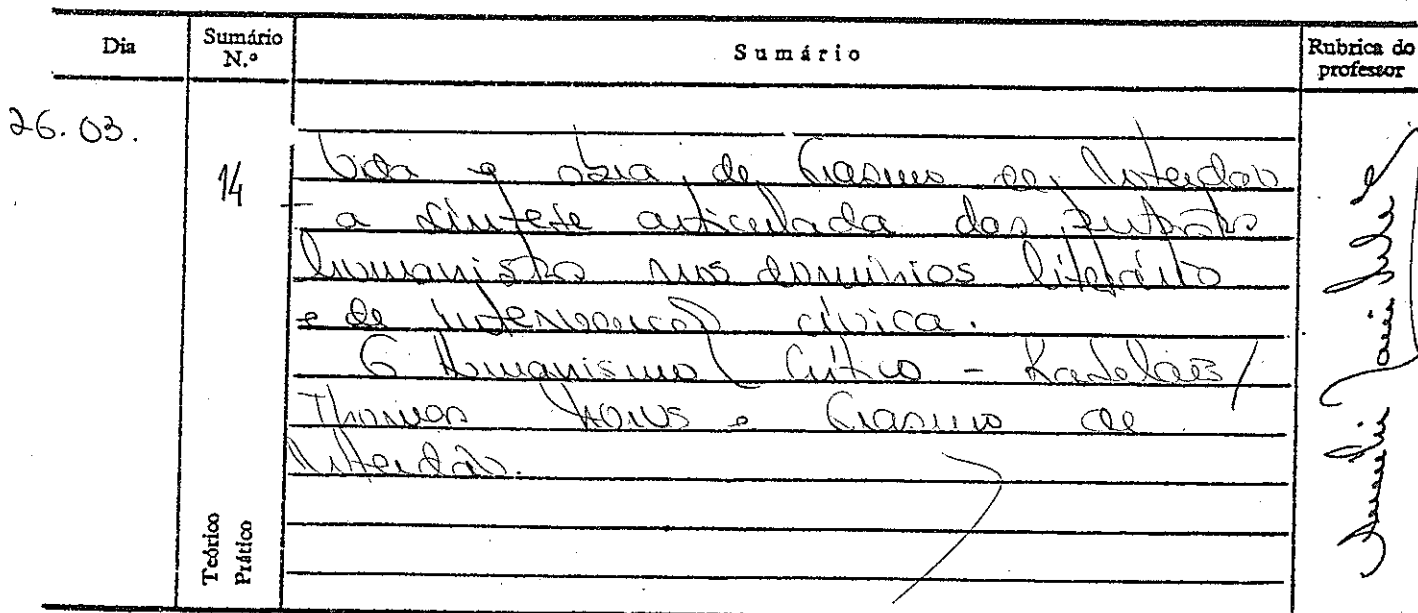 Dia
Sumário N.º
Sumário
Rubrica do professor
26.03.
14
Vida e obra de Erasmo de Roterdão
a síntese articulada dos
humanista nos domínios literário
e de intervenção cívica.
O Humanismo Crítico - Rabelais /
Thomas Morus e Erasmo de
Roterdão.
Teórico
Prático